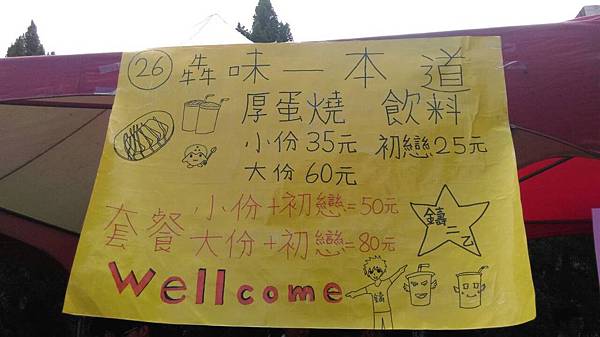 26 犇味一本道
厚蛋燒 飲料
小份35元 初戀25元
大份60元
套餐 小份+初戀=50元
大份+初戀=80元
鑄二乙
Wellcome
鑄